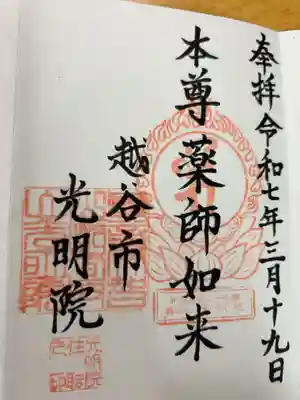 奉拝令和七年三月十九日
本尊薬師如来
越谷市
光明院